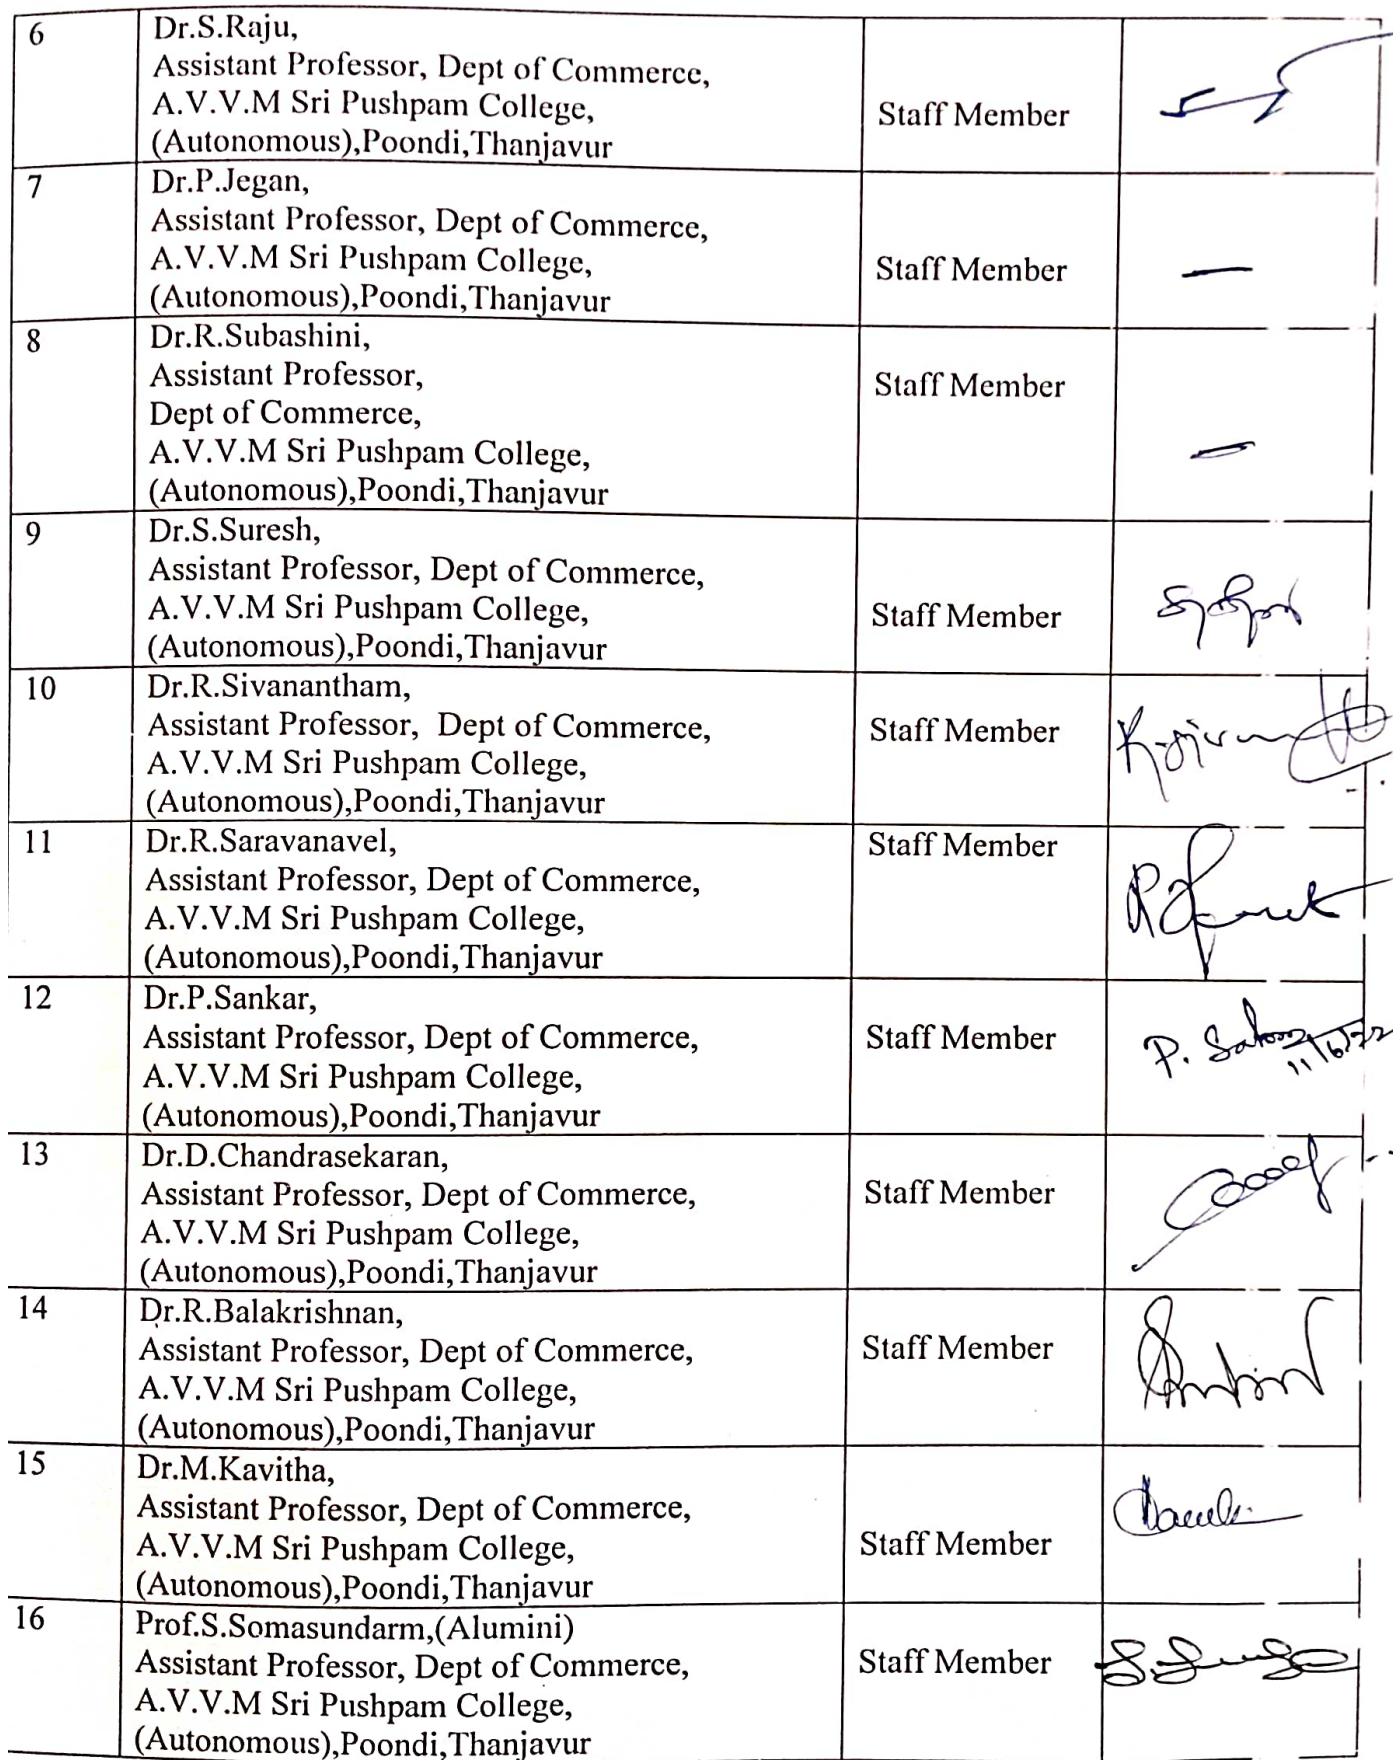 6
Dr.S.Raju,
Assistant Professor, Dept of Commerce,
A.V.V.M Sri Pushpam College,
(Autonomous),Poondi,Thanjavur
Staff Member
7
Dr.P.Jegan,
Assistant Professor, Dept of Commerce,
A.V.V.M Sri Pushpam College,
(Autonomous),Poondi,Thanjavur
Staff Member
8
Dr.R.Subashini,
Assistant Professor,
Dept of Commerce,
A.V.V.M Sri Pushpam College,
(Autonomous),Poondi,Thanjavur
Staff Member
9
Dr.S.Suresh,
Assistant Professor, Dept of Commerce,
A.V.V.M Sri Pushpam College,
(Autonomous),Poondi,Thanjavur
Staff Member
10
Dr.R.Sivanantham,
Assistant Professor, Dept of Commerce,
A.V.V.M Sri Pushpam College,
(Autonomous),Poondi,Thanjavur
Staff Member
11
Dr.R.Saravanavel,
Assistant Professor, Dept of Commerce,
A.V.V.M Sri Pushpam College,
(Autonomous),Poondi,Thanjavur
Staff Member
12
Dr.P.Sankar,
Assistant Professor, Dept of Commerce,
A.V.V.M Sri Pushpam College,
(Autonomous),Poondi,Thanjavur
Staff Member
P.
11/6/22
13
Dr.D.Chandrasekaran,
Assistant Professor, Dept of Commerce,
A.V.V.M Sri Pushpam College,
(Autonomous),Poondi,Thanjavur
Staff Member
14
Dr.R.Balakrishnan,
Assistant Professor, Dept of Commerce,
A.V.V.M Sri Pushpam College,
(Autonomous),Poondi,Thanjavur
Staff Member
15
Dr.M.Kavitha,
Assistant Professor, Dept of Commerce,
A.V.V.M Sri Pushpam College,
(Autonomous),Poondi,Thanjavur
Staff Member
16
Prof.S.Somasundarm,(Alumini)
Assistant Professor, Dept of Commerce,
A.V.V.M Sri Pushpam College,
(Autonomous),Poondi,Thanjavur
Staff Member